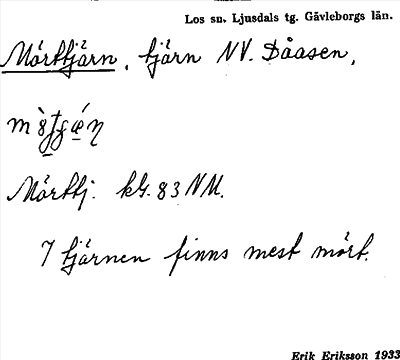 Los sn. Ljusdals tg. Gävleborgs län.
Mörttjärn, tjärn NV. Dåasen,
Mörttj. kG. 83 NM.
I tjärnen finns mest mört.
Erik Eriksson 1933